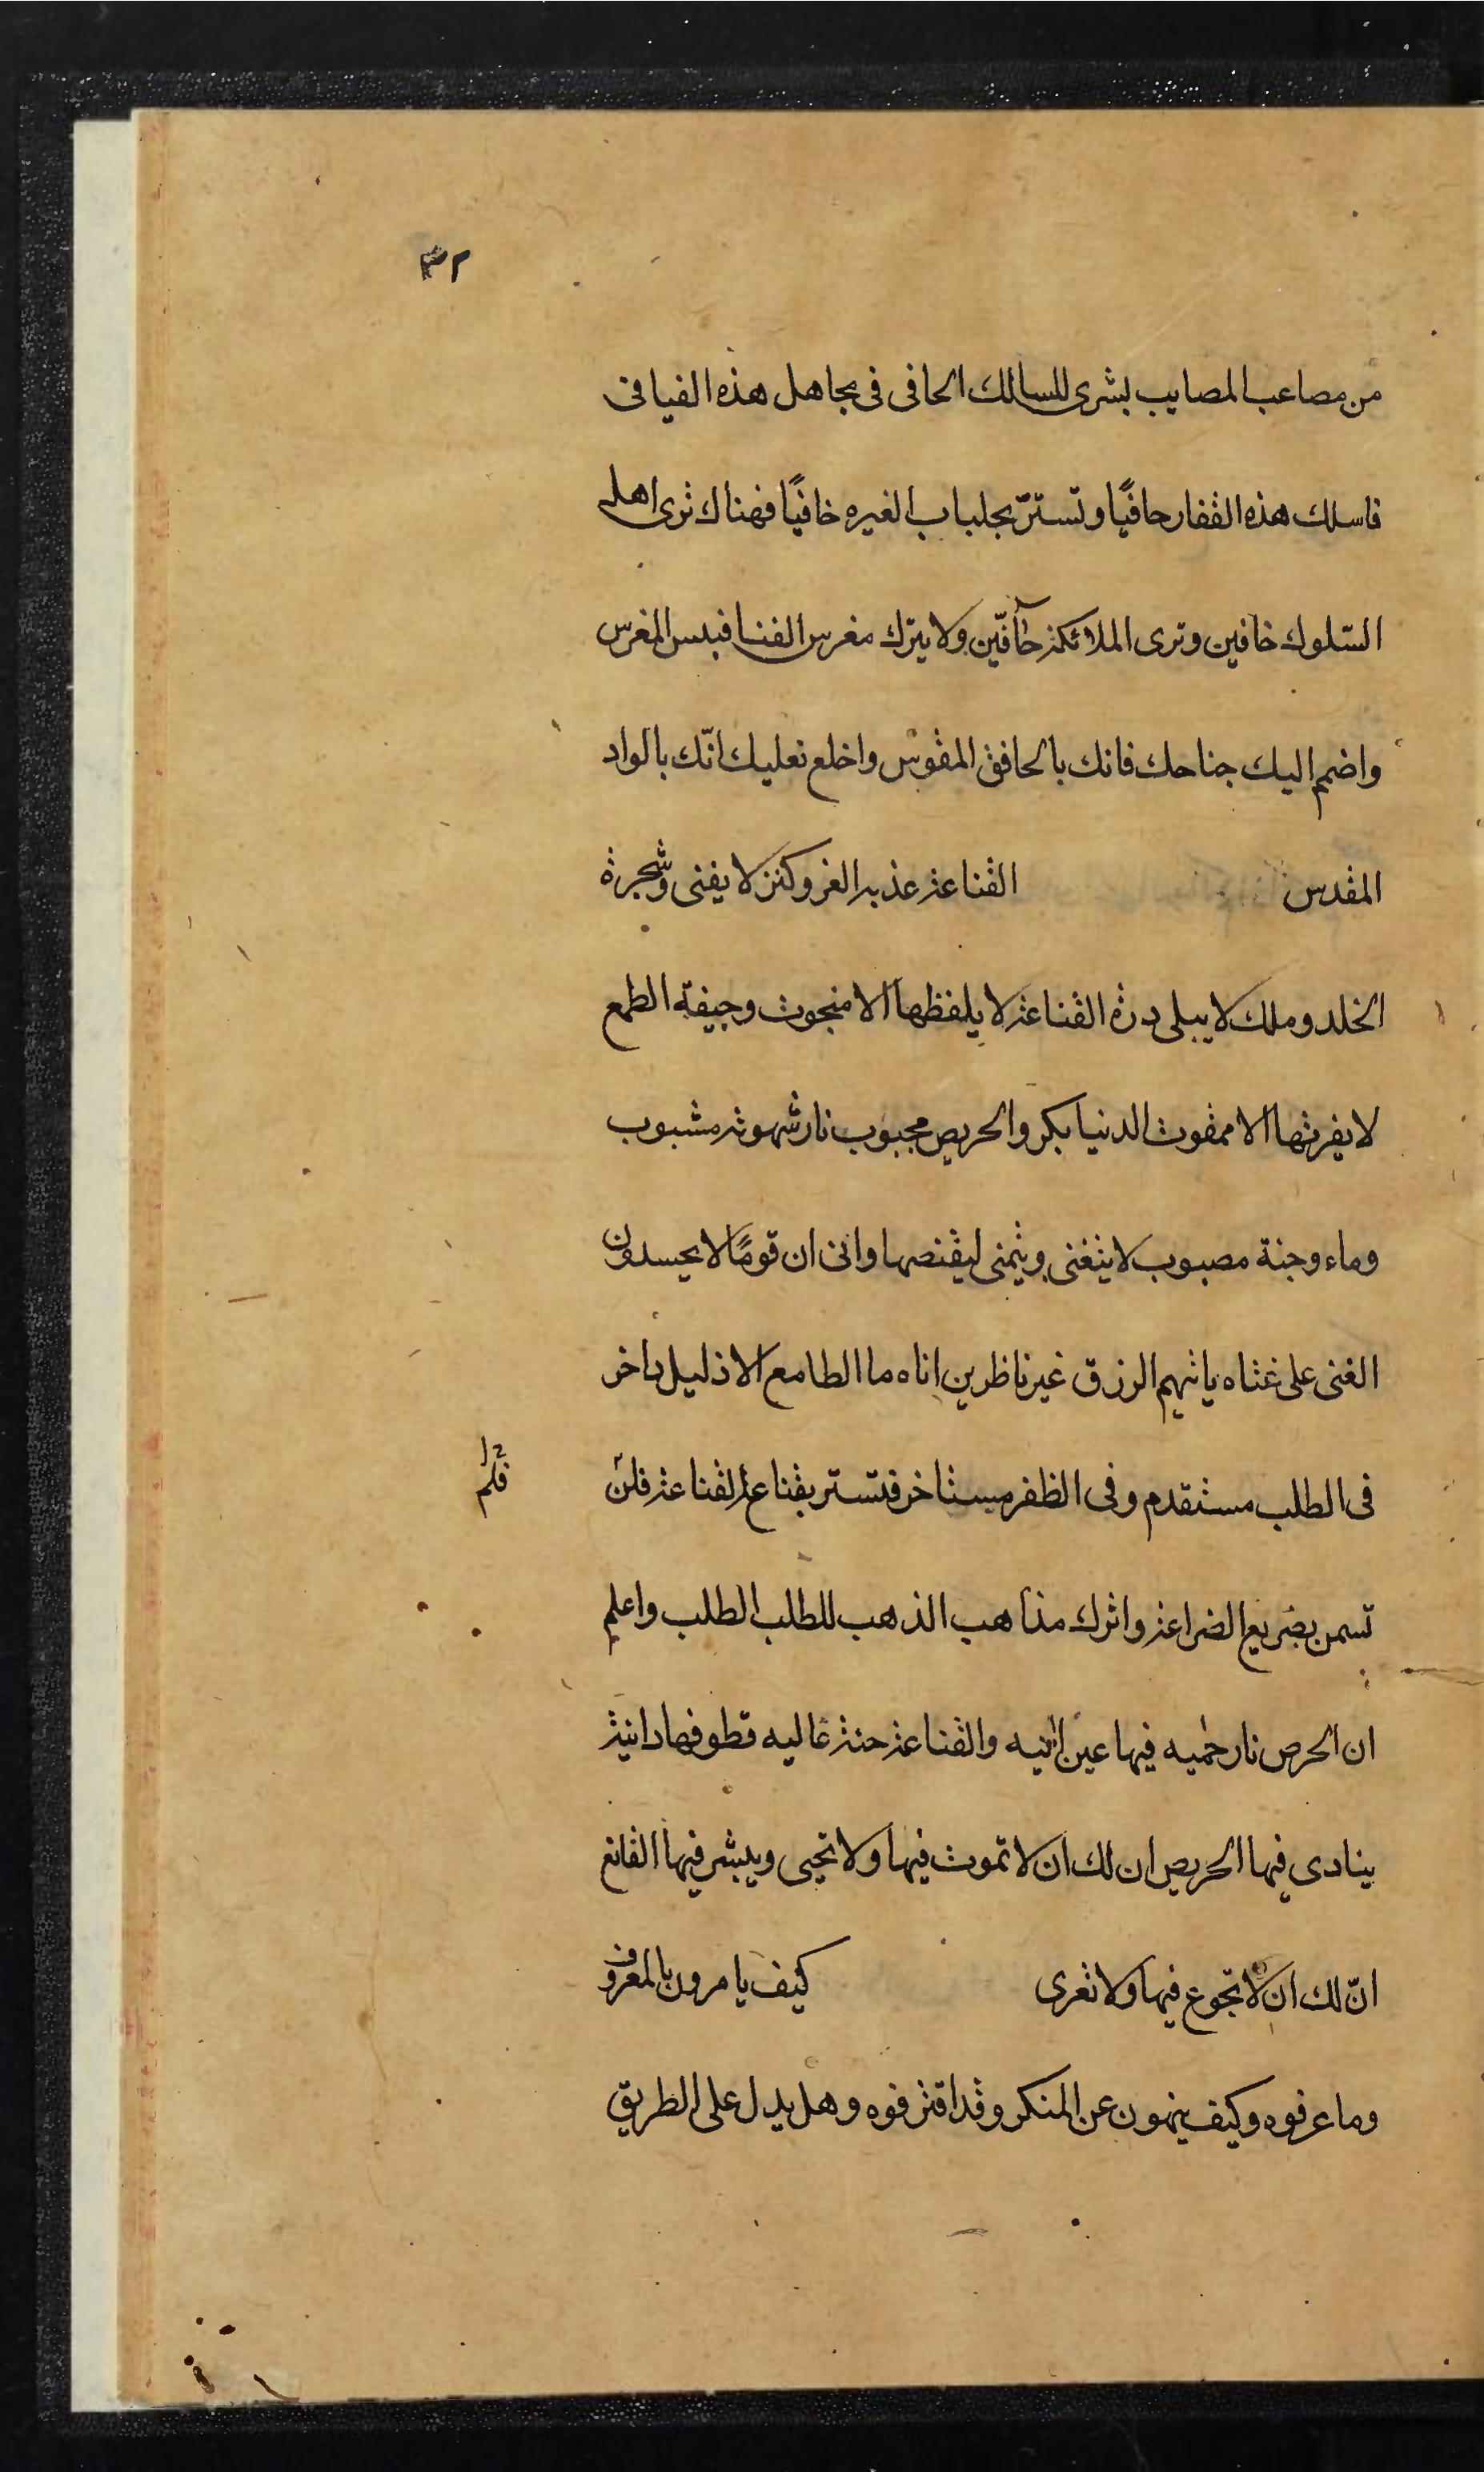 ٣٢
من مصاعب المصايب بشرى للسالك الحافى فى مجاهل هذه الفيافى
فاسلك هذه القفار حافيًا وتستتر بجلباب الغيره خافيًا فهناك ترى اهل
السّلوك خافين وترى الملائكة حآفّين ولا يترك مغرس الفنا فبئس المغرس
واضمم اليك جناحك فانك بالحافق المقوس واخلع نعليك انّك بالواد
المقدس القناعة عذبه الغر وكنز لا يفنى وشجرة
الخلد وملك لا يبلى درة القناعة لا يلفظها الا منجوت وجيفة الطمع
لا يفرثها الا ممقوت الدنيا بكر والحريص مجبوب نار شهوته مشبوب
وماء وجنة مصبوب لا يتغنى ويتمنى ليقنصها وانى ان قومًا لا يحسدون
الغنى على غناه ياتيهم الرزق غير ناظرين اناه ما الطامع الا ذليل داخر
فى الطلب مستقدم وفى الظفر مستاخر فتستر بقناع القناعة فلن
فلم
تسمن بضريع الضراعة واترك مذاهب الذهب للطلب الطلب واعلم
ان الحرص نار حميه فيها عين انيه والقناعة جنة عاليه قطوفها دانية
ينادى فيها الحريص ان لك ان لا تموت فيها ولا تحيى ويبشر فيها القانع
انّ لك ان لا تجوع فيها ولا تعرى كيف يامرون بالمعروف
وما عرفوه وكيف ينهون عن المنكر وقد اقترفوه وهل يدل على الطريق